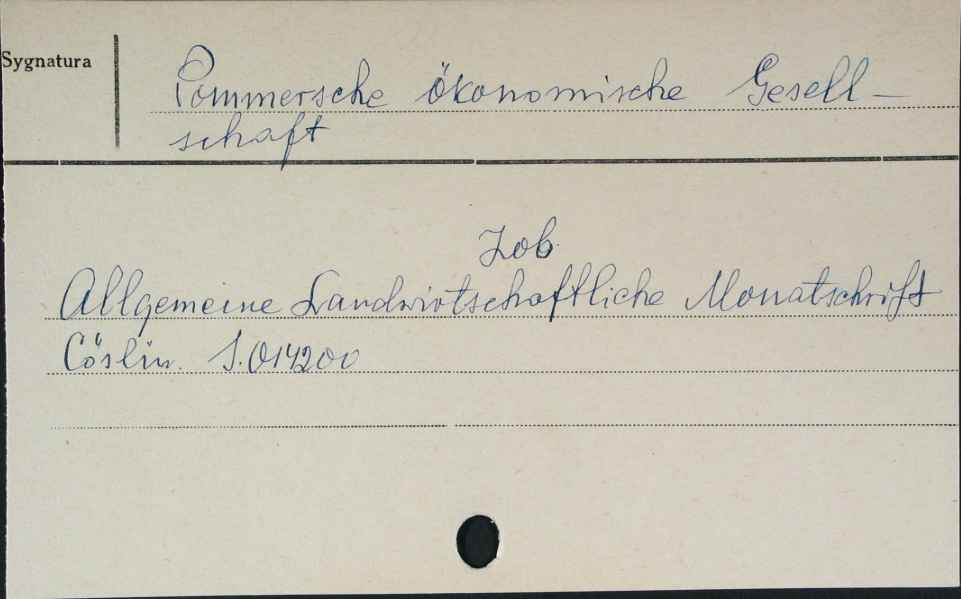 Sygnatura
Pommersche ökonomische Gesell-
schaft
Zob.
Allgemeine Landwirtschaftliche Monatschrift
Cöslin. S.014200